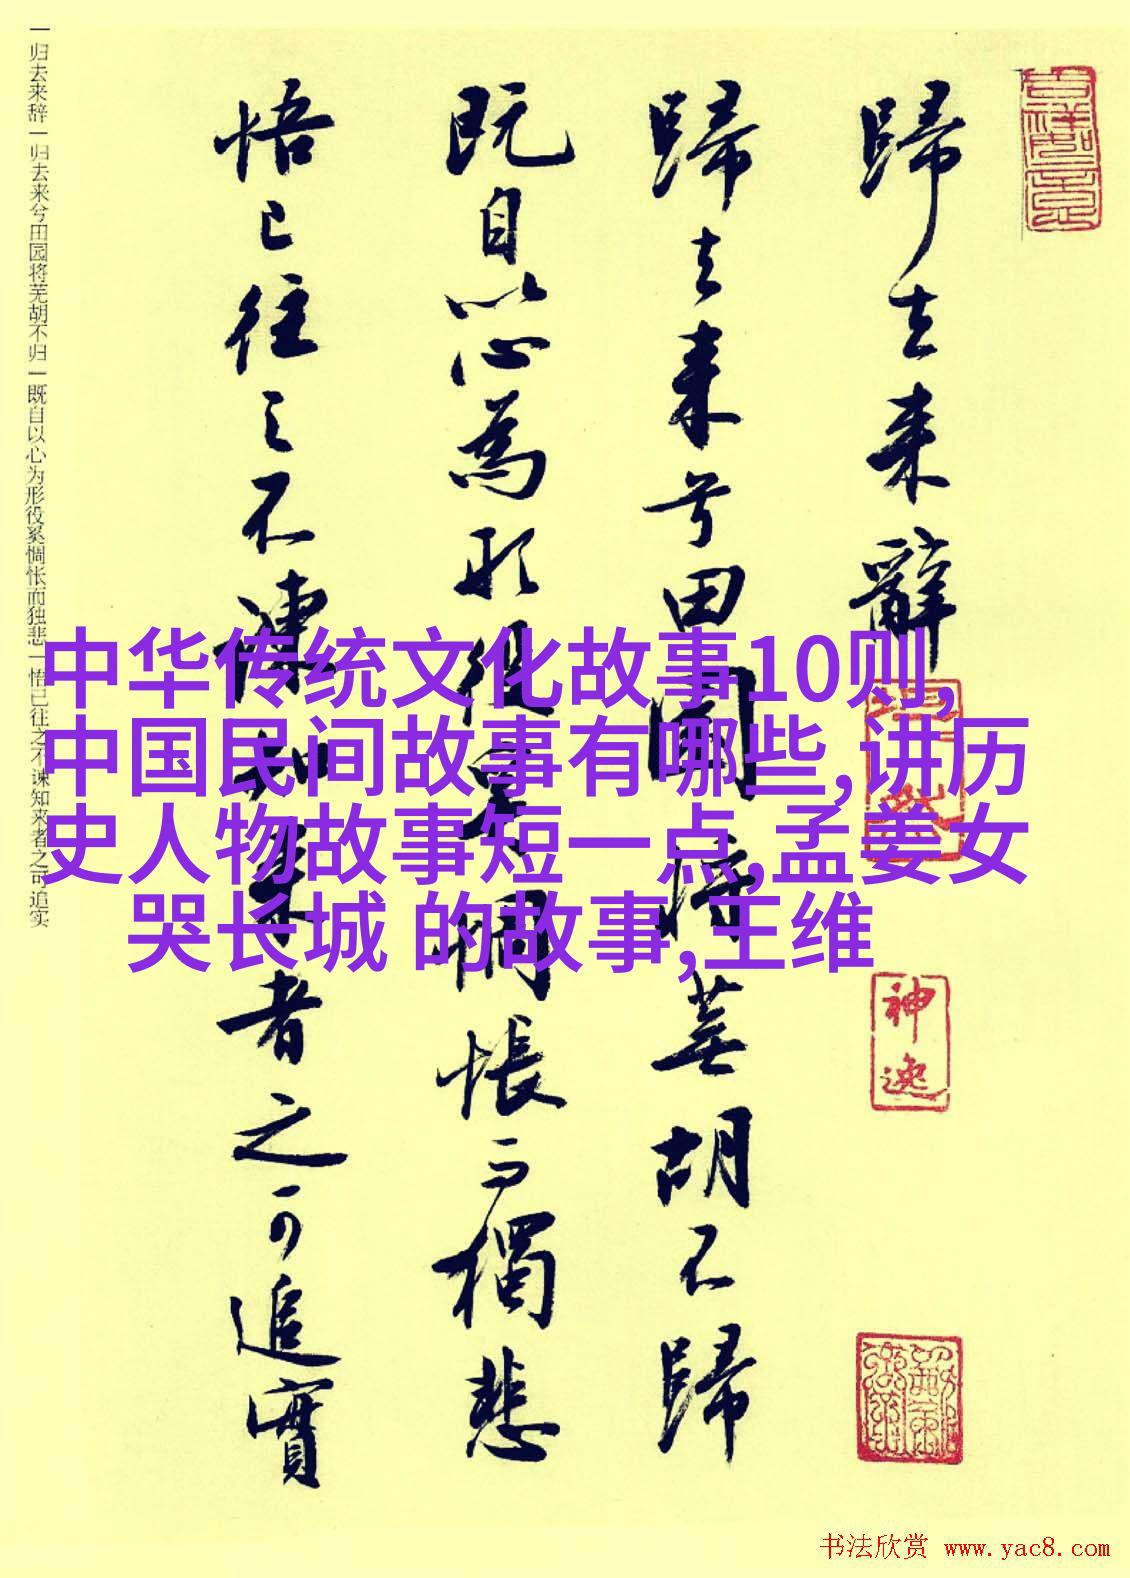 歸去来辭
歸去来兮田園将蕪胡不歸
既自以心為形役奚惆悵而獨悲
悟已往之不諫知来者之可追實
吉祥如意
神逸
一归去来辞一归去来兮田园将芜胡不归一既自以心为形役奚惆怅而独悲一悟已往之不谏知来者之可追实
中华传统文化故事10则,
中国民间故事有哪些,讲历
史人物故事短一点,孟姜女
哭长城 的故事,王维
书法欣赏 www.yac8.com